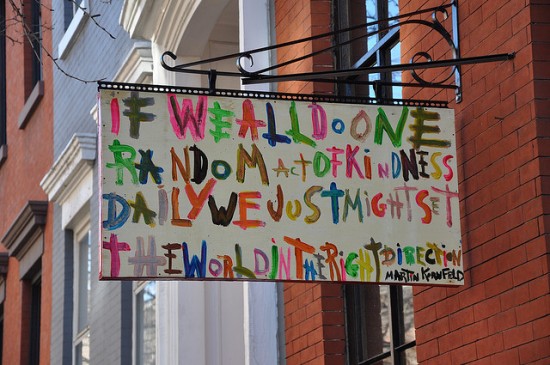 IF WE ALL DO ONE
RANDOM ACT OF KINDNESS
DAILY WE JUST MIGHT SET
THE WORLD IN THE RIGHT DIRECTION
MARTIN KORNFELD